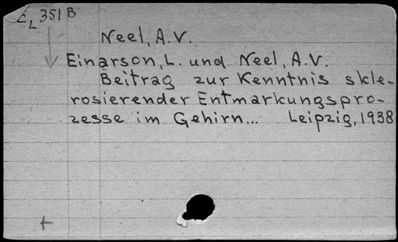 EL 351B
Neel, A.V.
Einarson, L. und Neel, A.V.
Beitrag zur Kenntnis skle-
rosierender Entmarkungspro-
zesse im Gehirn... Leipzig, 1938